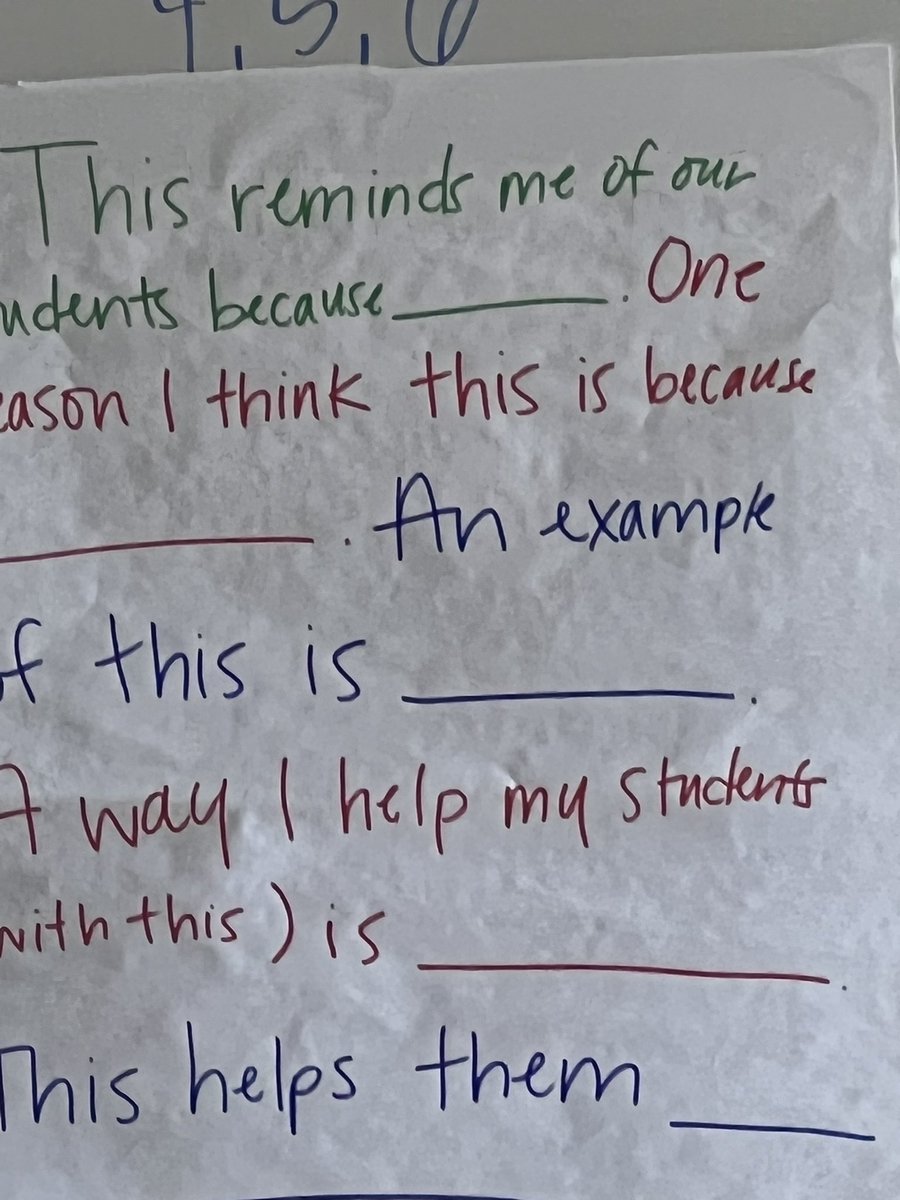 4, 5, 6
This reminds me of our
udents because ________. One
eason I think this is because
________. An example
f this is ________.
A way I help my students
with this) is ________.
This helps them ____